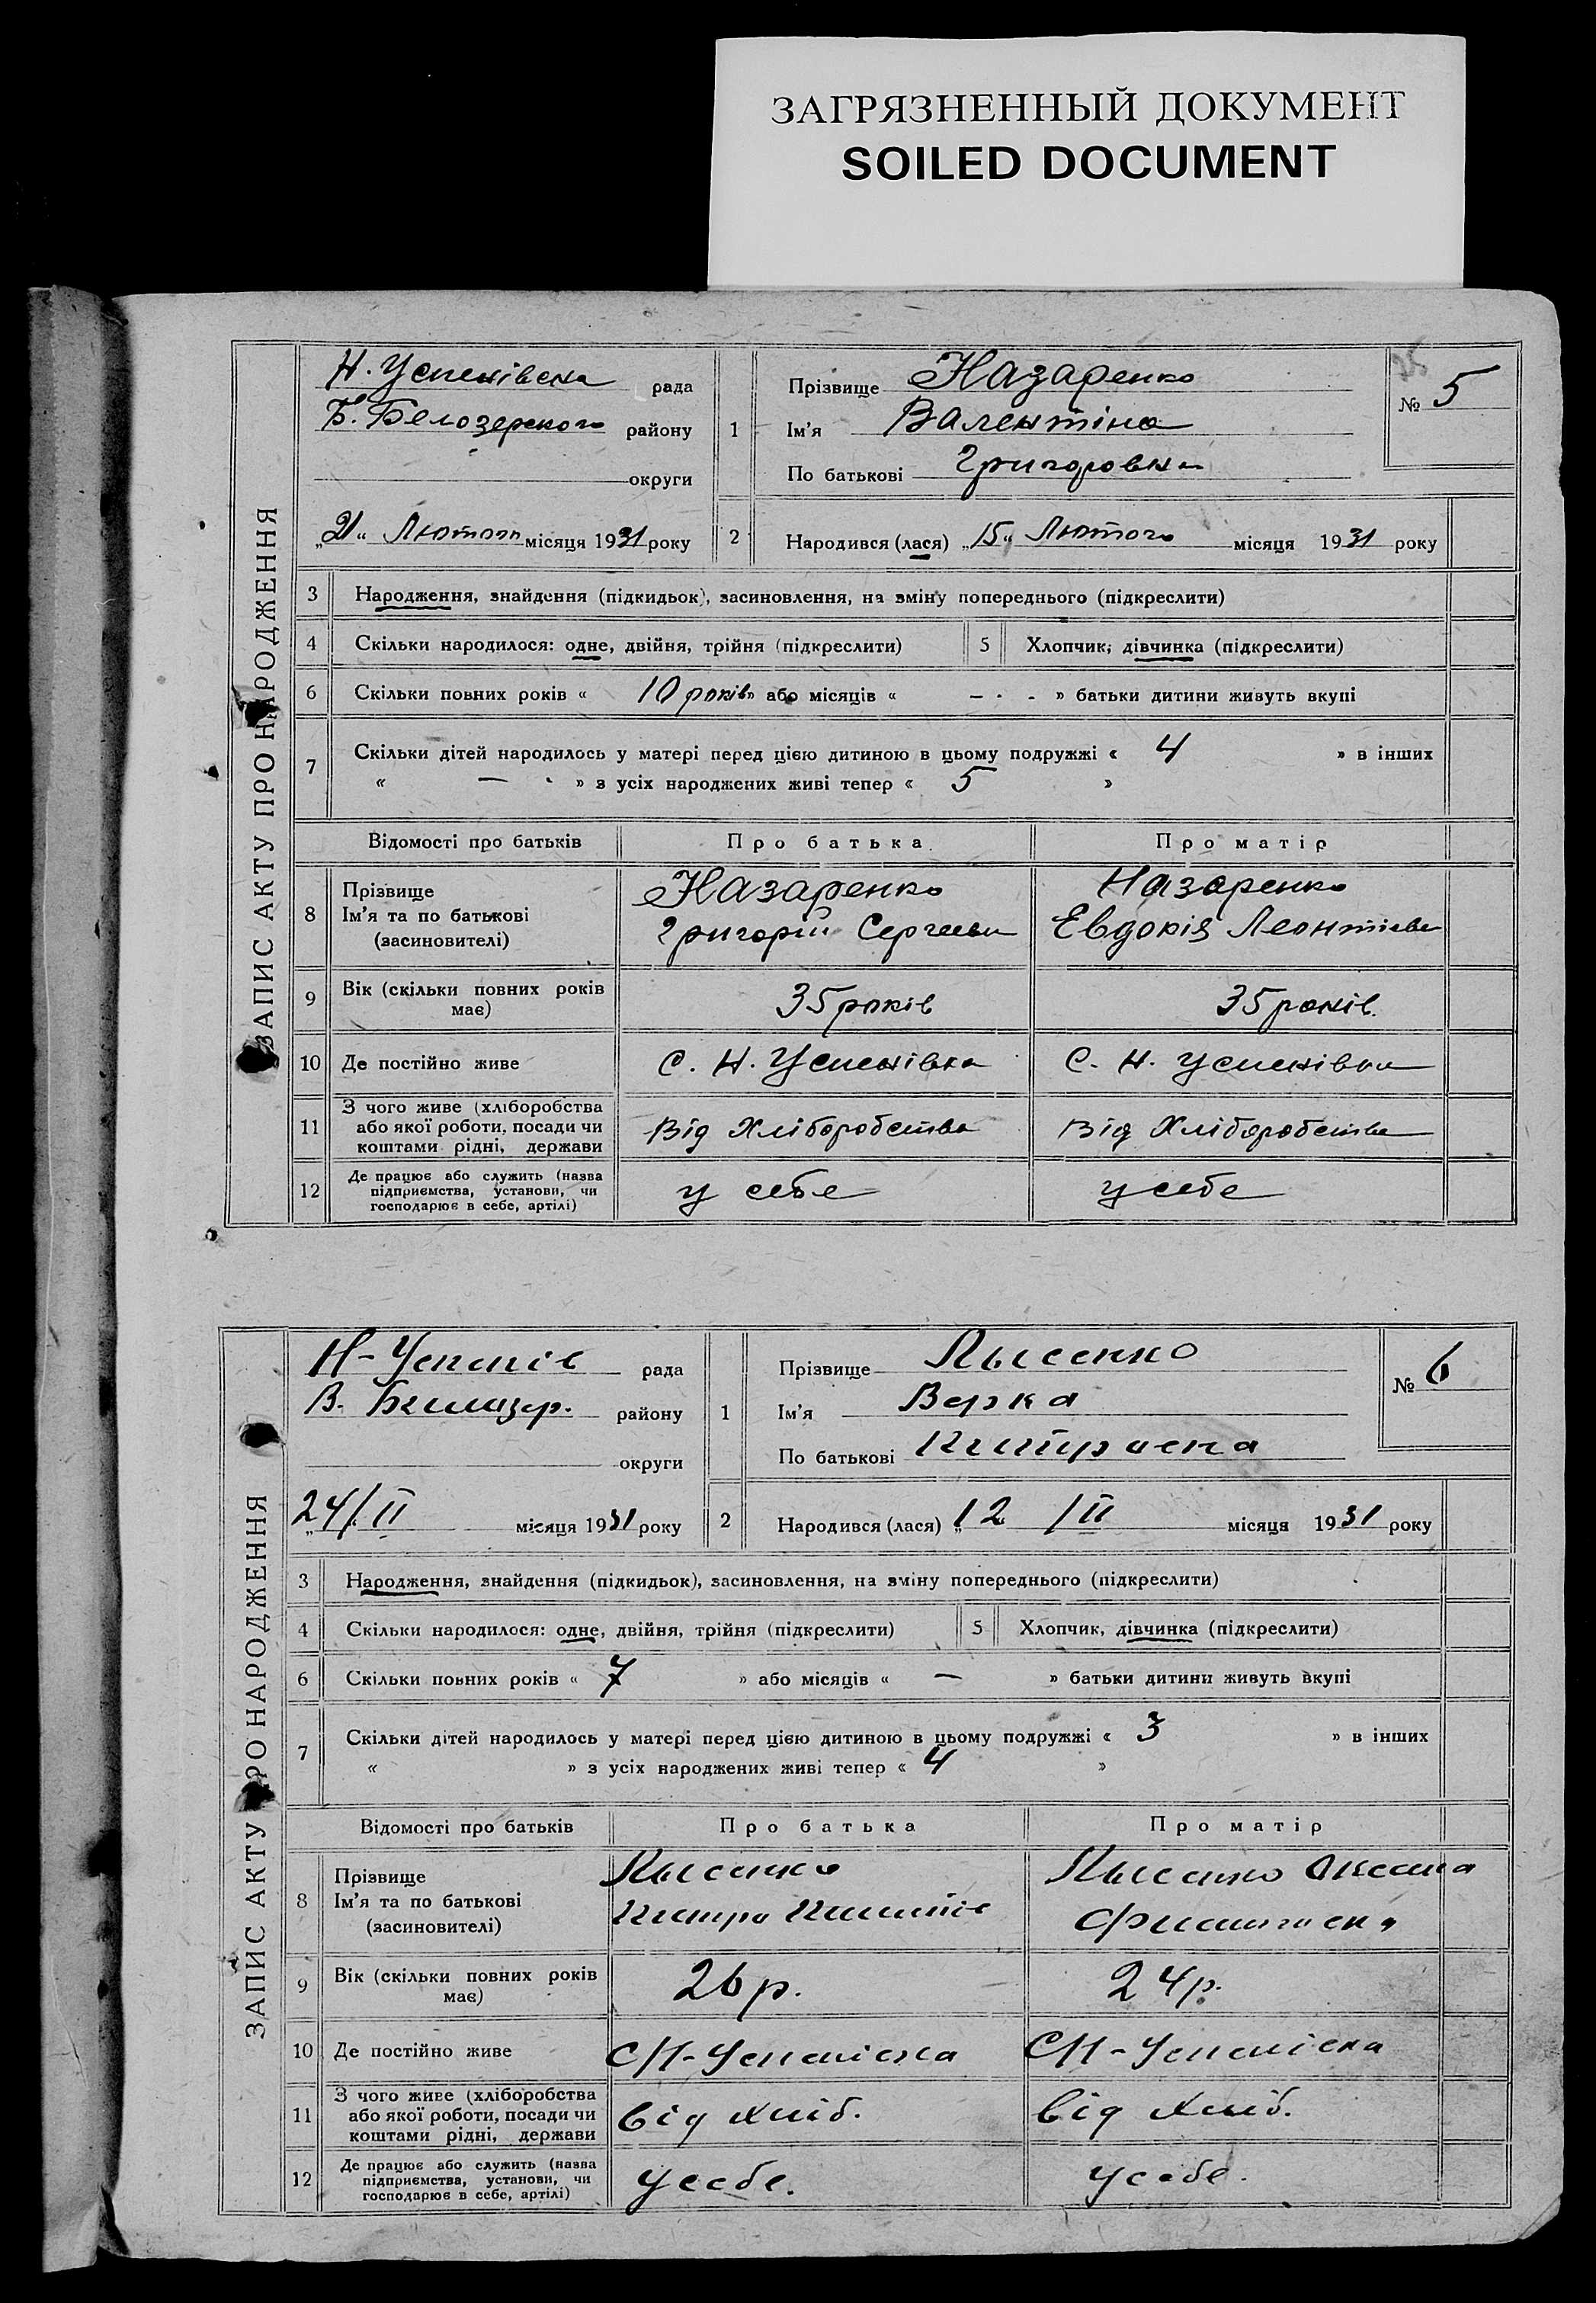 ЗАГРЯЗНЕННЫЙ ДОКУМЕНТ
SOILED DOCUMENT
ЗАПИС АКТУ ПРО НАРОДЖЕННЯ
Н. Успенівска рада
Б. Белозерского району
округи
„21“ Лютого місяця 1931 року
1
Прізвище Назаренко
Ім’я Валентіна
По батькові Григоровна
№ 5
2 Народився (лася) „15“ Лютого місяця 1931 року
3 Народження, знайдення (підкидьок), засиновлення, на зміну попереднього (підкреслити)
4 Скільки народилося: одне, двійня, трійня (підкреслити) 5 Хлопчик, дівчинка (підкреслити)
6 Скільки повних років « 10 років » або місяців « - · - » батьки дитини живуть вкупі
7 Скільки дітей народилось у матері перед цією дитиною в цьому подружжі « 4 » в інших
« — » з усіх народжених живі тепер « 5 »
Відомості про батьків Про батька Про матір
8 Прізвище Ім’я та по батькові (засиновителі)
Назаренко Назаренко
Григорій Сергееви Евдокія Леонтієва
9 Вік (скільки повних років має) 35 років 35 років.
10 Де постійно живе С. Н. Успенівка С. Н. Успенівка
11 З чого живе (хліборобства
або якої роботи, посади чи
коштами рідні, держави
Від Хліборобства Від Хліборобства
12 Де працює або служить (назва
підприємства, установи, чи
господарює в себе, артілі)
у себе у себе
ЗАПИС АКТУ ПРО НАРОДЖЕННЯ
Н-Успенів рада
В. Билозер. району
округи
24/II місяця 1931 року
1
Прізвище Лысенко
Ім’я Верка
По батькові
№ 6
2 Народився (лася) „12 /II місяця 1931 року
3 Народження, знайдення (підкидьок), засиновлення, на зміну попереднього (підкреслити)
4 Скільки народилося: одне, двійня, трійня (підкреслити) 5 Хлопчик, дівчинка (підкреслити)
6 Скільки повних років « 7 » або місяців « — » батьки дитини живуть вкупі
7 Скільки дітей народилось у матері перед цією дитиною в цьому подружжі « 3 » в інших
« » з усіх народжених живі тепер « 4 »
Відомості про батьків Про батька Про матір
8 Прізвище Ім’я та по батькові (засиновителі)
Лысенко Лысенко Оксана
9 Вік (скільки повних років має) 26 р. 24 р.
10 Де постійно живе С Н-Успенівка С Н-Успенівка
11 З чого живе (хліборобства
або якої роботи, посади чи
коштами рідні, держави
від хліб. від хліб.
12 Де працює або служить (назва
підприємства, установи, чи
господарює в себе, артілі)
у себе. у себе.